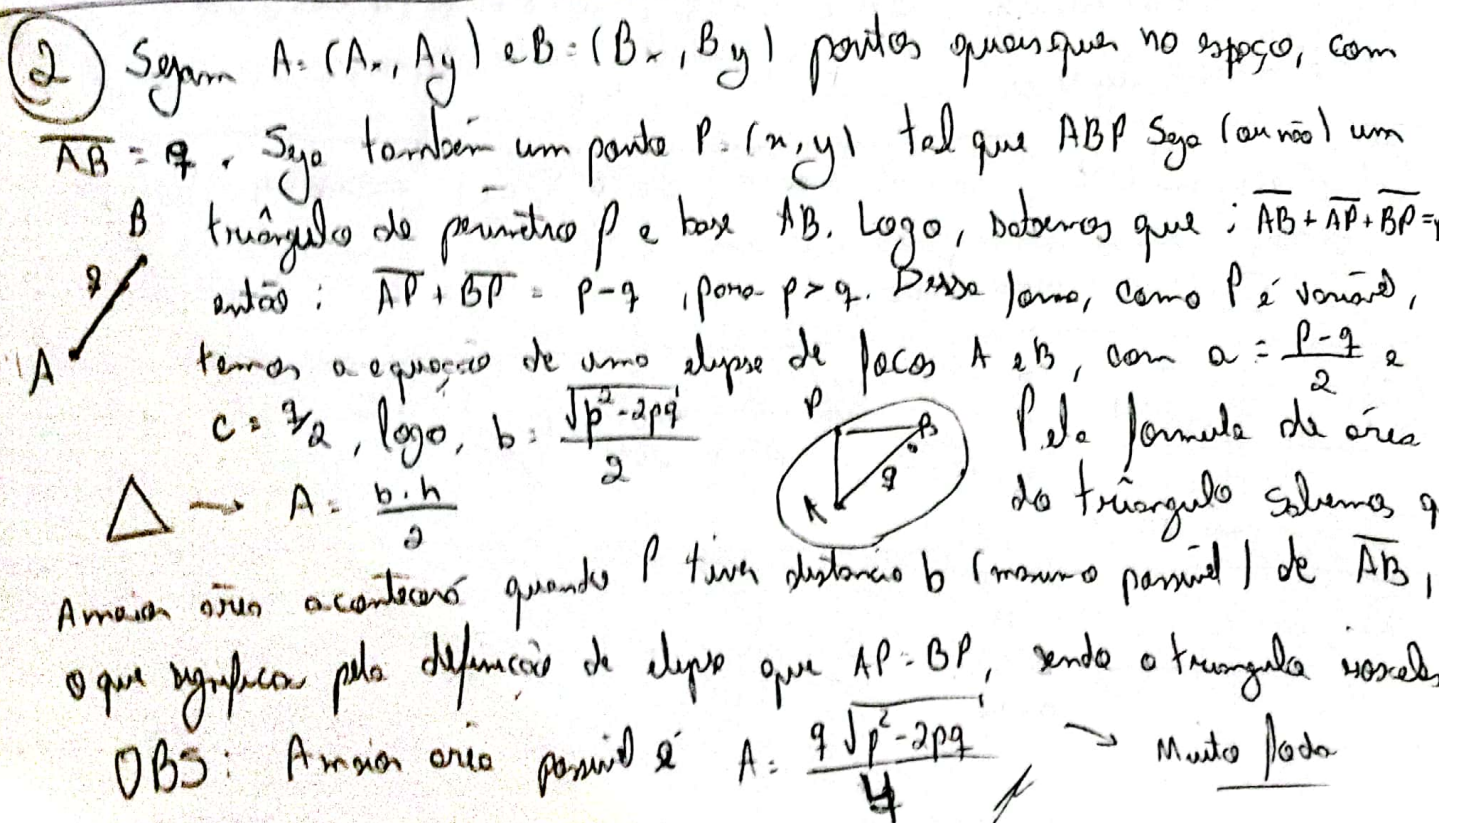 2 Sejam A=(Ax, Ay) e B=(Bx, By) pontos quaisquer no espaço, com
AB = q. Seja também um ponto P=(x,y) tal que ABP seja (ou não) um
B triângulo de perímetro p e base AB. Logo, sabemos que: AB+AP+BP=
q então: AP+BP = p-q, para p>q. Dessa forma, como P é variável,
A temos a equação de uma elipse de focos A e B, com a = p-q/2 e
c = q/2, logo, b = √p²-2pq/2 P B Pela formula de área
△ → A = b.h/2 A q do triângulo sabemos q
A maior área acontecerá quando P tiver distancia b (maximo possivel) de AB,
o que significa pela definicão de elipse que AP=BP, sendo o triangulo isosceles
OBS: A maior area possivel é A = q√p²-2pq/4 → Muito foda